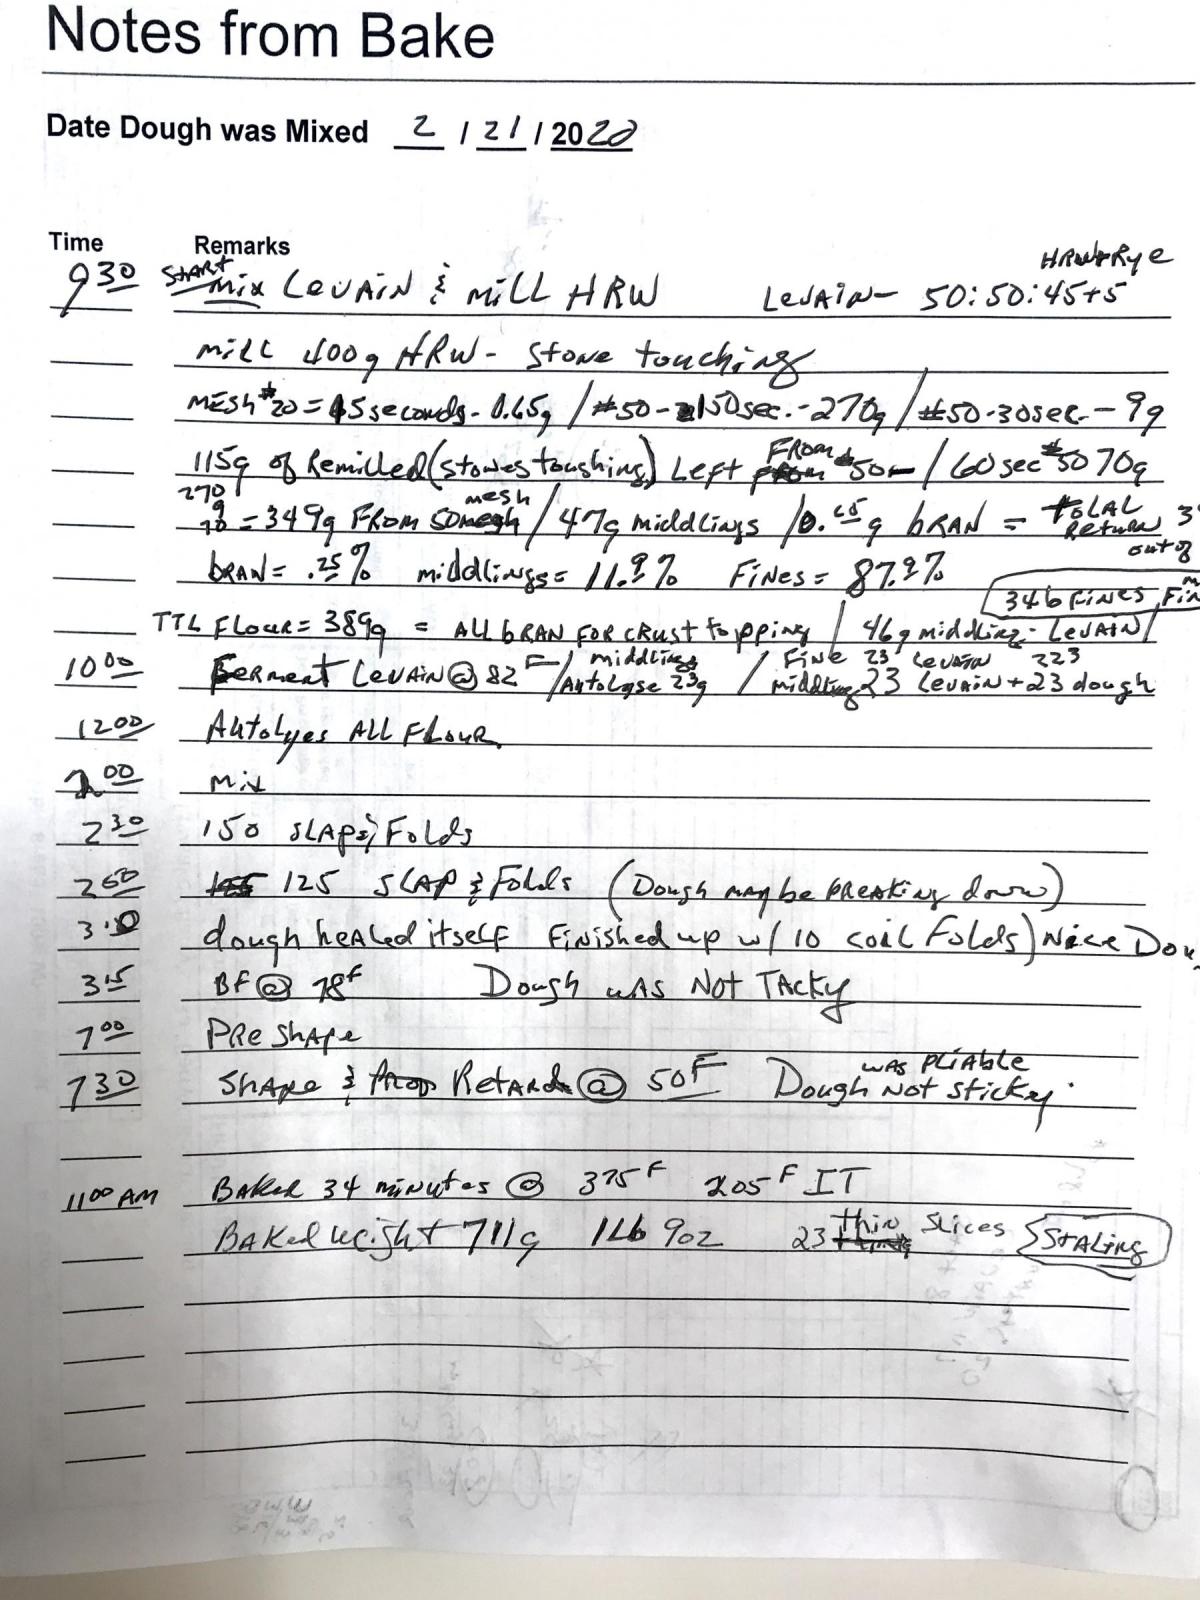 Notes from Bake
Date Dough was Mixed 2 / 21 / 2020
Time Remarks
HRW+Rye
9 30 START mix LEVAIN & mill HRW LEVAIN- 50:50:45+5
mill 400g HRW- Stone touching
MESH #20 = 15 seconds- 0.65g / #50- 150sec.-270g / #50-30sec-9g
115g of Remilled (stones touching) Left FROM #50- / 60 sec #50 70g
270
9
70 = 349g FROM 50 mesh / 47g middlings / 0.65g bRAN = TOTAL Return
out of
bRAN = .25% middlings= 11.9% Fines= 87.9%
346 FINES
TTL FLOUR= 389g = ALL bRAN FOR CRUST topping / 46g middling- LEVAIN /
10 00 Ferment LEVAIN @ 82 F / middlings Autolyse 23g / Fine 23 Levain 223
middling 23 Levain + 23 dough
12 00 Autolyes ALL FLOUR.
2 00 mix
2 30 150 SLAP & Folds
2 50 125 SLAP & Folds (Dough may be breaking down)
3 10 dough healed itself Finished up w/ 10 coil Folds) Nice
3 15 BF @ 78F Dough was Not TACKy
7 00 PRe shape
7 30 Shape & Retard @ 50F Dough was pliable Not sticky.
11 00 AM Baked 34 minutes @ 375 F 205 F IT
Baked weight 711g 1Lb 9oz 23 thin Slices {STALing